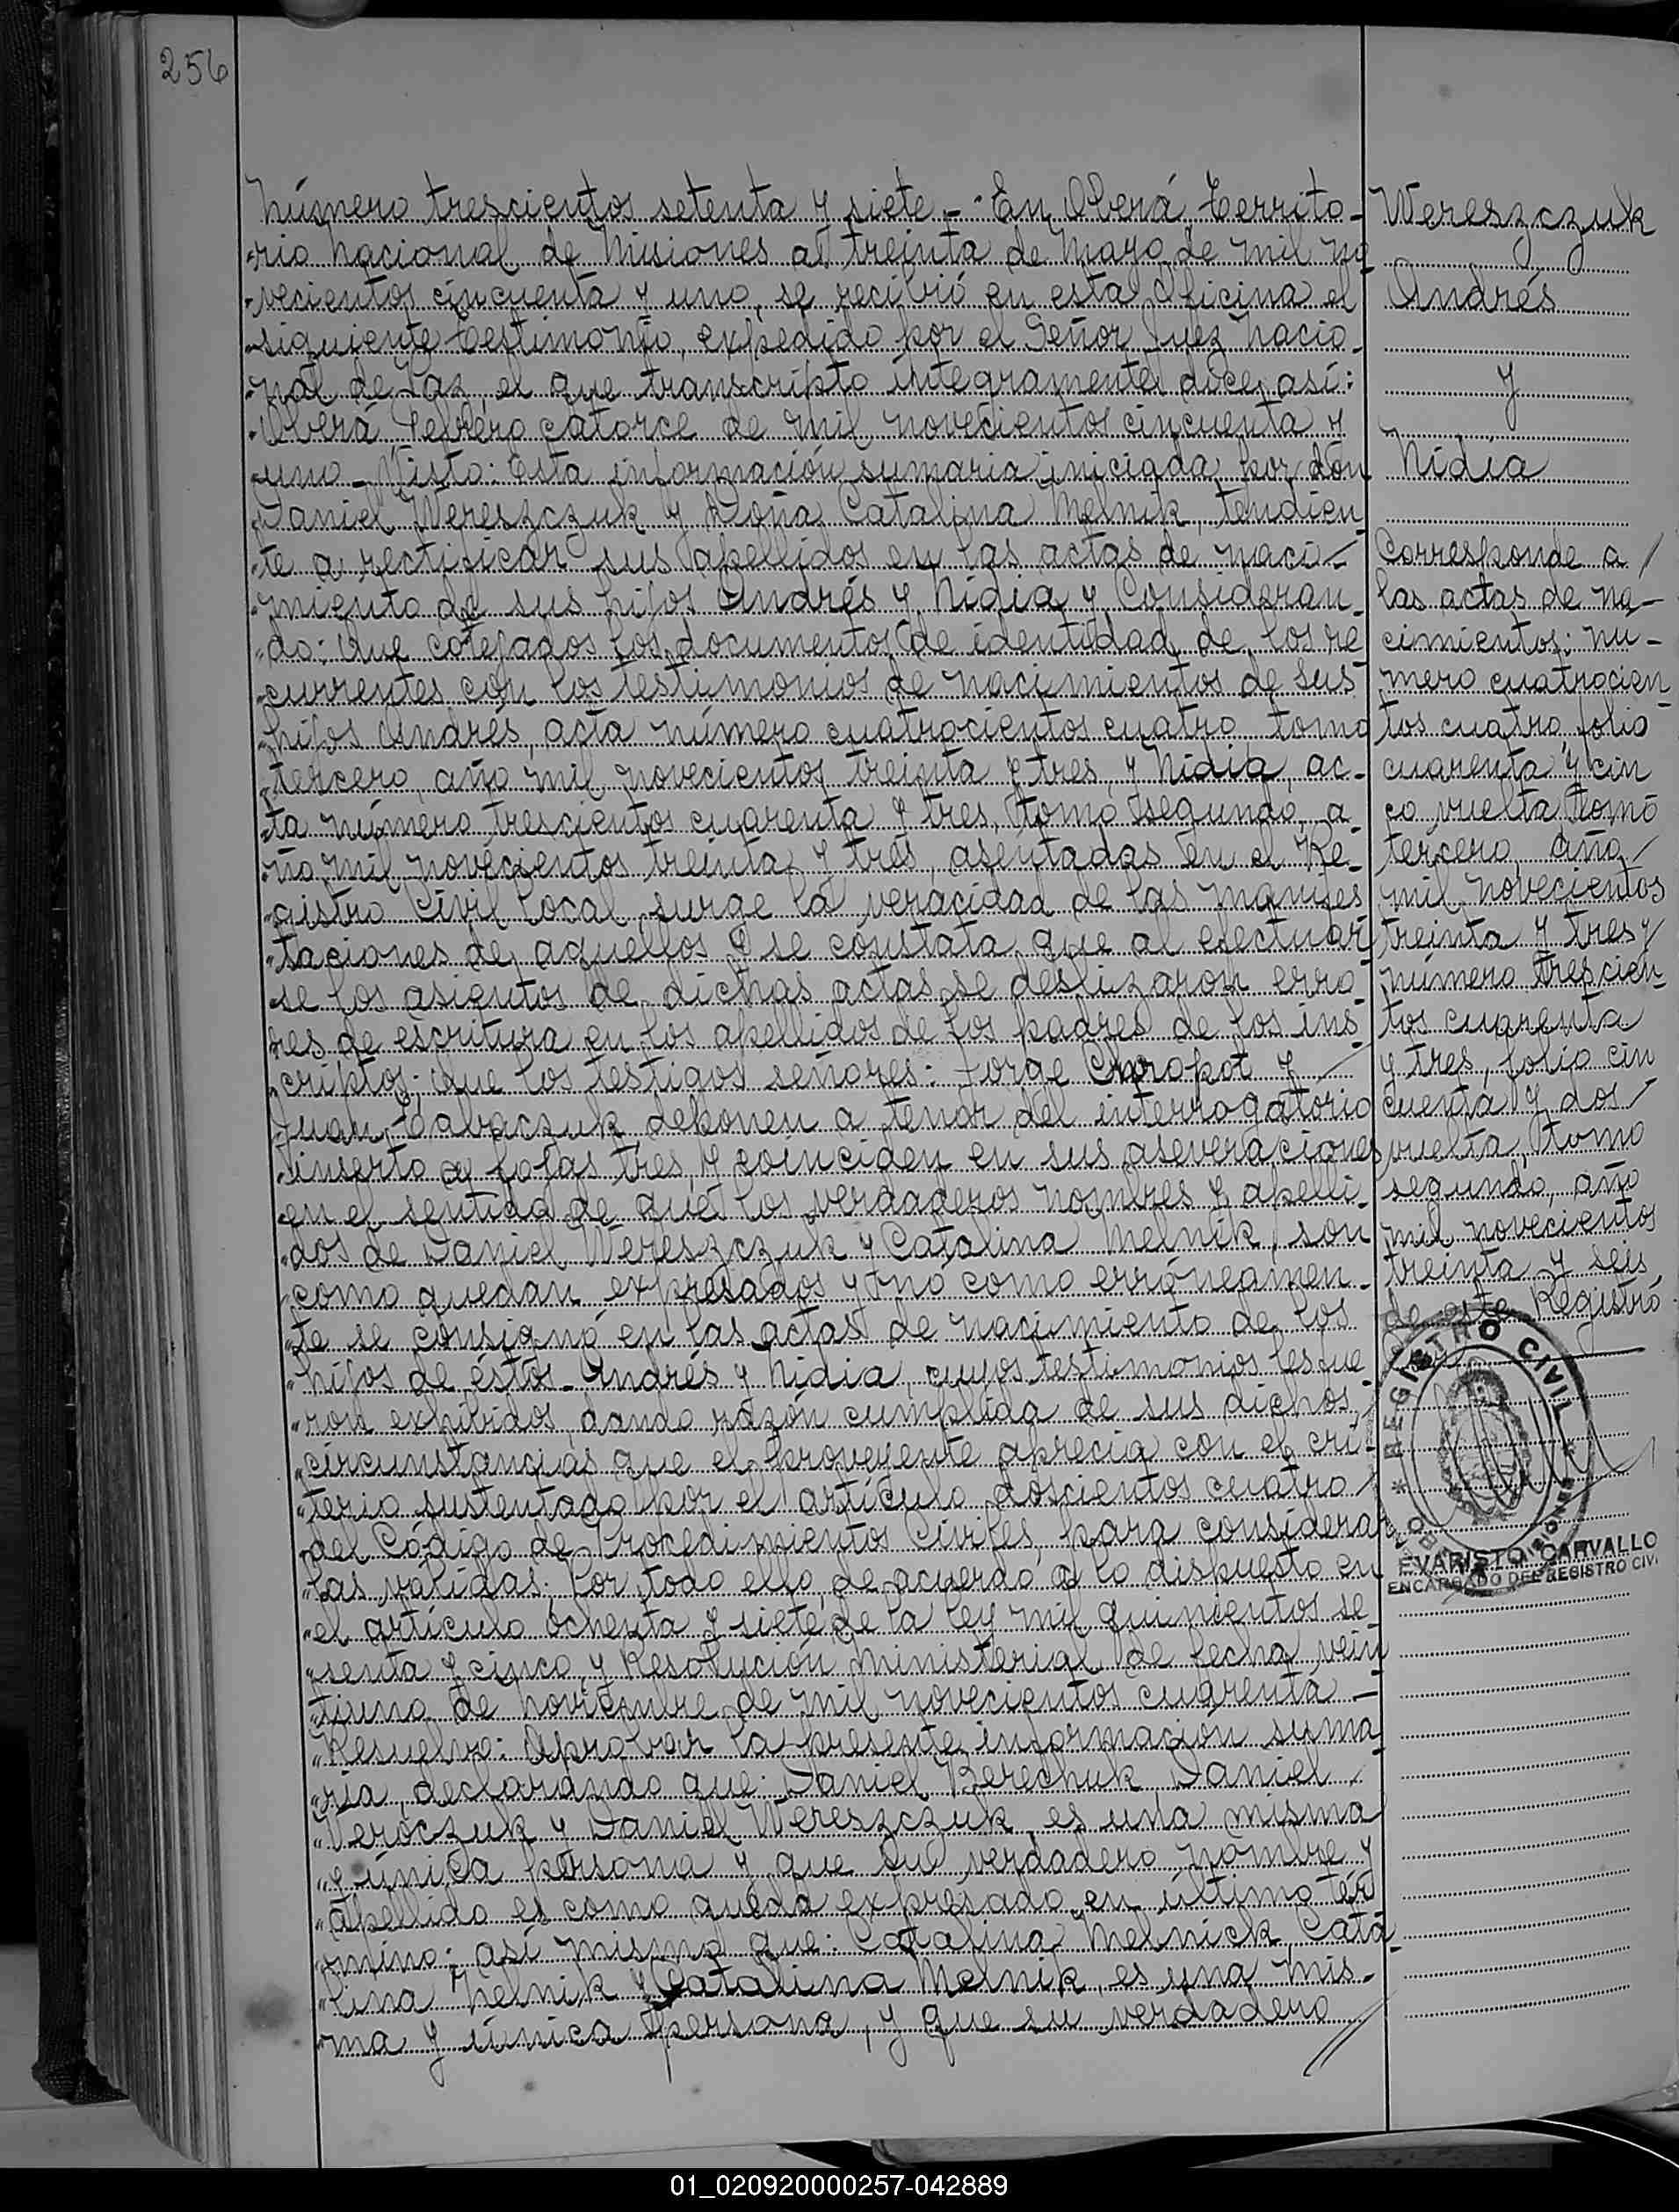 256
Número trescientos setenta y siete.- En Oberá Territo-
rio Nacional de Misiones a treinta de Mayo de mil no
vecientos cincuenta y uno, se recibió en esta Oficina el
siguiente testimonio, expedido por el Señor Juez Nacio-
nal de Paz, el que transcripto íntegramente, dice así:
Oberá Febrero catorce de mil novecientos cincuenta y
uno.- Visto: Esta información sumaria iniciada por don
Daniel Wereszczuk y Doña Catalina Melnik, tendien
te a rectificar sus apellidos en las actas de naci-
miento de sus hijos Andrés y Nidia y Consideran-
do: Que cotejados los documentos de identidad de los re
currentes con los testimonios de nacimientos de sus
hijos Andrés, acta número cuatrocientos cuatro tomo
tercero, año mil novecientos treinta y tres y Nidia, ac-
ta número trescientos cuarenta y tres, tomo segundo, a-
ño mil novecientos treinta y tres, asentadas en el Re-
gistro Civil local surge la veracidad de las manifes
taciones de aquellos y se constata que al efectuar
se los asientos de dichas actas se deslizaron erro-
res de escritura en los apellidos de los padres de los ins
criptos; Que los testigos señores: Jorge Chropot y
Juan Cabaczuk deponen a tenor del interrogatorio
inserto a fojas tres, y coinciden en sus aseveraciones
en el sentido de que los verdaderos nombres y apelli-
dos de Daniel Wereszczuk y Catalina Melnik, son
como quedan expresados y nó como erróneamen-
te se consignó en las actas de nacimiento de los
hijos de éstos- Andrés y Nidia, cuyos testimonios les fue
ron exhibidos, dando razón cumplida de sus dichos,
circunstancias que el proveyente aprecia con el cri-
terio sustentado por el artículo doscientos cuatro
del Código de Procedimientos Civiles, para considerar
las válidas; Por todo ello, de acuerdo a lo dispuesto en
el artículo ochenta y siete de la ley mil quinientos se
senta y cinco y Resolución Ministerial de fecha vein
tiuno de Noviembre de mil novecientos cuarenta -
Resuelvo: Aprobar la presente información suma
ria, declarando que: Daniel Berechuk Daniel
Veroczuk y Daniel Wereszczuk, es una misma
y única persona y que su verdadero nombre y
apellido es como queda expresado en último tér
mino; así mismo que: Catalina Melnick, Cata-
lina Melnik y Catalina Melnik, es una mis-
ma y única persona, y que su verdadero
Wereszczuk
Andrés
y
Nidia
Corresponde a
las actas de na-
cimientos: nú-
mero cuatrocien-
tos cuatro, folio
cuarenta y cin
co vuelta tomo
tercero, año
mil novecientos
treinta y tres y
número trescien-
tos cuarenta
y tres, folio cin
cuenta y dos
vuelta, tomo
segundo, año
mil novecientos
treinta y seis
de este Registro
REGISTRO CIVIL
EVARISTO CARVALLO
ENCARGADO DEL REGISTRO CIVIL
01_020920000257-042889